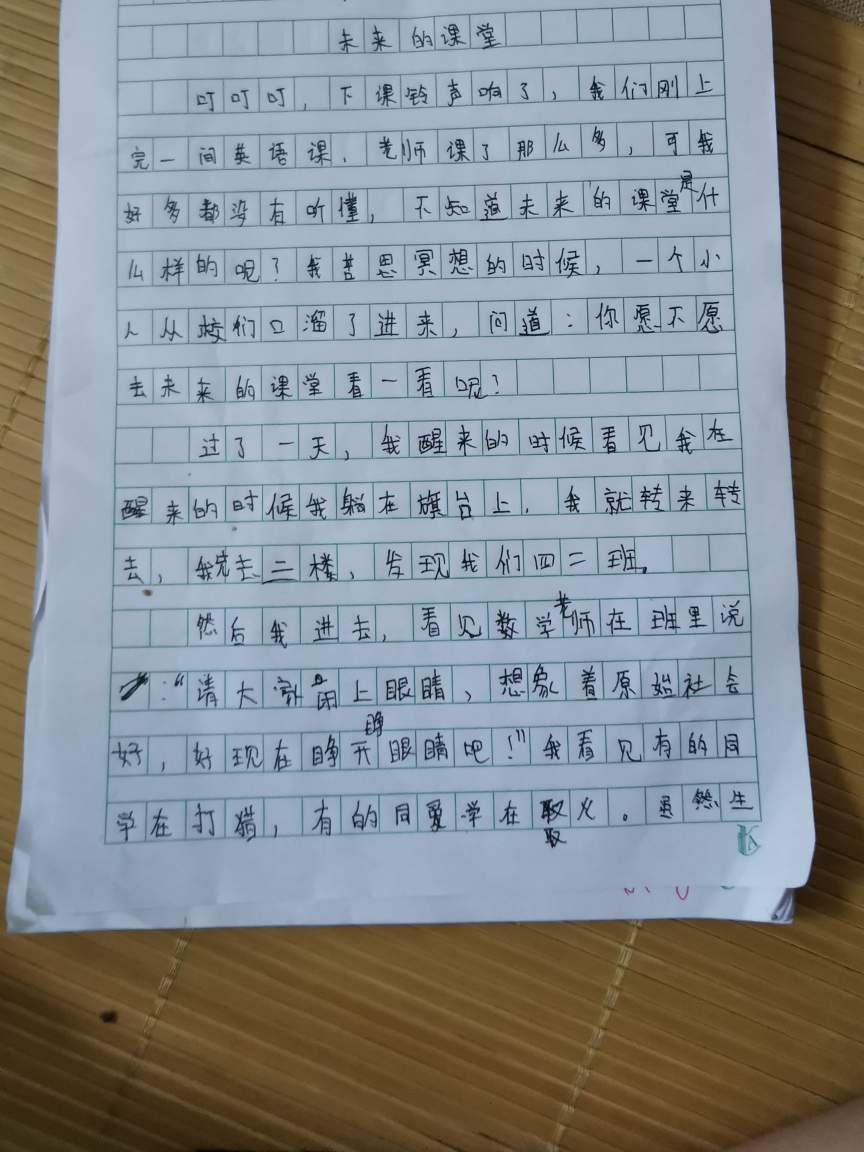 未来的课堂
叮叮叮，下课铃声响了，我们刚上
完一间英语课，老师课了那么多，可我
好多都没有听懂，不知道未来的课堂是什
么样的呢？我苦思冥想的时候，一个小
人从校们口溜了进来，问道：你愿不愿
去未来的课堂看一看呢？
过了一天，我醒来的时候看见我在
醒来的时候我躺在旗台上，我就转来转
去，我完去三楼，发现我们四二班。
然后我进去，看见数学老师在班里说
：“请大家闭上眼睛，想象着原始社会
好，好现在睁开眼睛吧！”我看见有的同
学在打猎，有的同爱学在取火。虽然生